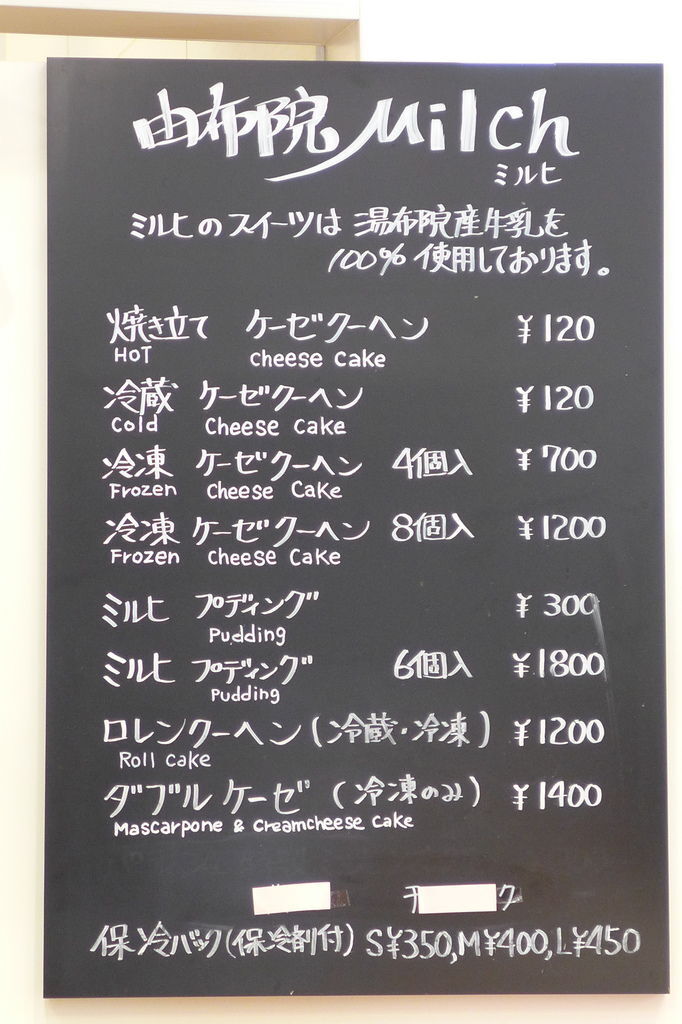 由布院 Milch
ミルヒ
ミルヒのスイーツは 湯布院産牛乳を
100% 使用しております。
焼き立て ケーゼクーヘン ¥120
HOT cheese cake
冷蔵 ケーゼクーヘン ¥120
Cold Cheese Cake
冷凍 ケーゼクーヘン 4個入 ¥700
Frozen Cheese Cake
冷凍 ケーゼクーヘン 8個入 ¥1200
Frozen Cheese Cake
ミルヒ プディング ¥300
Pudding
ミルヒ プディング 6個入 ¥1800
Pudding
ロレンクーヘン (冷蔵・冷凍) ¥1200
Roll cake
ダブルケーゼ (冷凍のみ) ¥1400
Mascarpone & Creamcheese cake
保冷バック(保冷剤付) S¥350,M¥400,L¥450